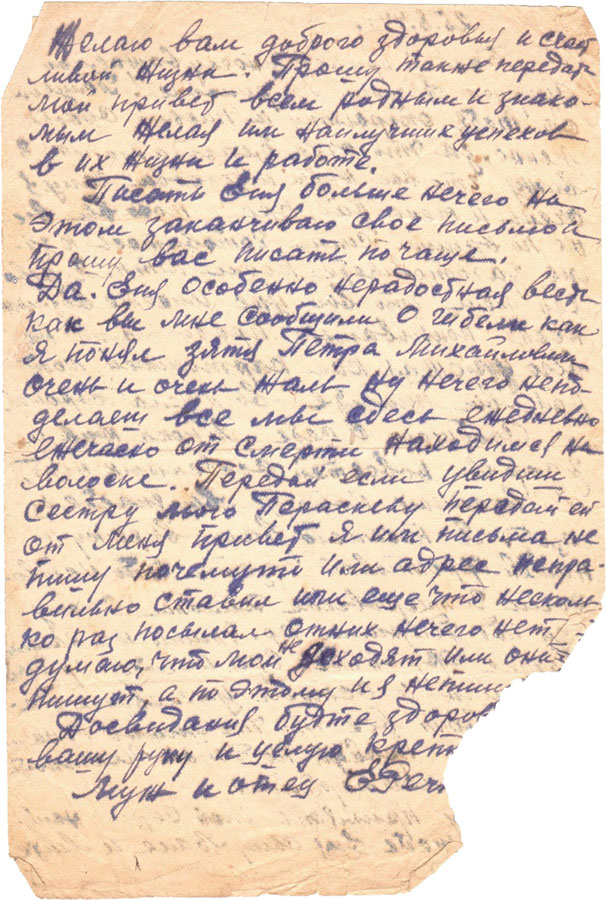 Желаю вам доброго здоровья и счас
ливой жизни. Прошу также передат
мой привет всем родным и знако-
мым желая им наилучших успехов
в их жизни и работе.
Писать Еня больше нечего на
этом заканчиваю свое письмо и
прошу вас писать почаще.
Да. Еня особенно нерадостная весть
как вы мне сообщили о гибели как
я понял зятя Петра Михайлович
очень и очень жаль ну нечего непо-
делаеш все мы сдесь ежедневно
ежечасно от смерти находимся на
волоске. Передай если увидиш
сестру мою Пераскеву передай ей
от меня привет я им письма не
пишу почемуто или адрес непра-
вильно ставил или еще что несколь-
ко раз посылал отних нечего нет
думаю, что мои не доходят или они
пишут, а по этому и я непиш
Досвидания будте здоров
вашу руку и целую креп
Муж и отец